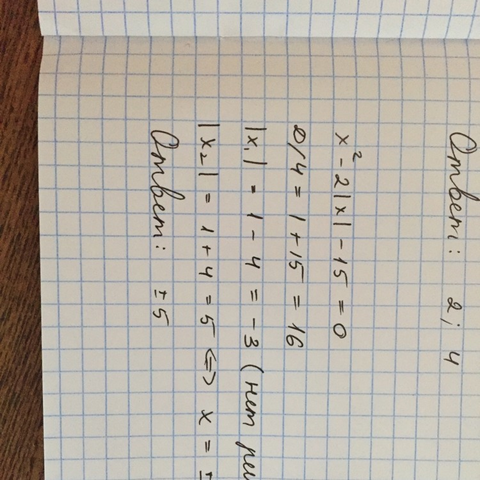 Ответ: 2; 4
x² - 2|x| - 15 = 0
D/4 = 1 + 15 = 16
|x₁| = 1 - 4 = -3 (нет
|x₂| = 1 + 4 = 5 <=> x = ±
Ответ: ±5